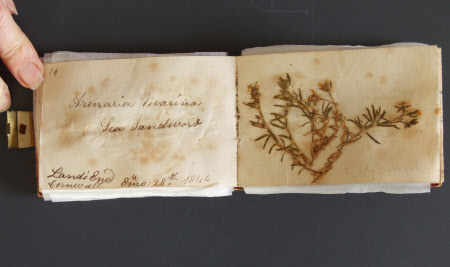 14
Arenaria Marina
Sea Sandwort
Land's End
Cornwall 28th 1846